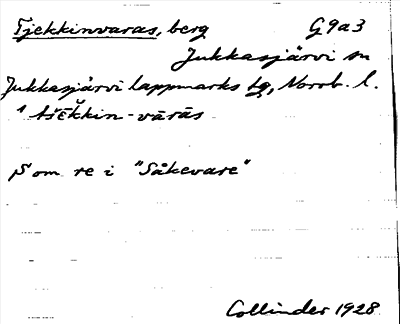 Tjekkinvaras, berg G9a3
Jukkasjärvi sn
Jukkasjärvi lappmarks tg, Norrb. l.
Som re i "Såkevare"
Collinder 1928